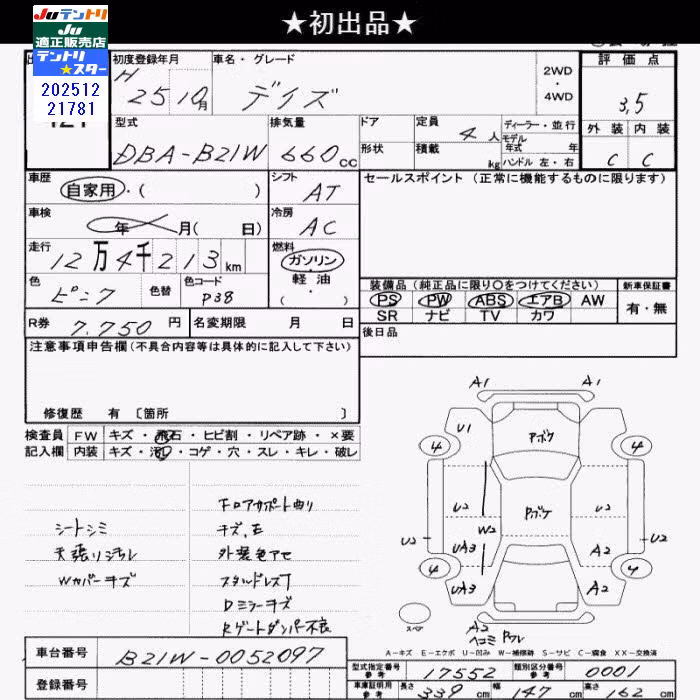 Juテントリ
Ju
適正販売店
テントリ
★スター
202512
21781
★初出品★
初度登録年月
H 25 10月
車名・グレード
デイズ
2WD
・
4WD
評価点
3.5
外装 内装
C C
型式
DBA-B21W
排気量
660cc
ドア
形状
定員
4人
積載
kg
ディーラー・並行
モデル
年式 年
ハンドル 左・右
車歴
自家用・( )
シフト
AT
セールスポイント (正常に機能するものに限ります)
車検
年 月( 日)
冷房
AC
走行
12万4千213km
燃料
ガソリン
軽油
( ・ )
色
ピンク
色替
色コード
P38
装備品 (純正品に限り○をつけてください)
PS PW ABS エアB AW
SR ナビ TV カワ
新車保証書
有・無
R券
7.750円
名変期限 月 日
後日品
注意事項申告欄 (不具合内容等は具体的に記入して下さい)
修復歴 有 〔箇所 〕
検査員
記入欄
FW キズ・飛石・ヒビ割・リペア跡・×要
内装 キズ・汚れ・コゲ・穴・スレ・キレ・破レ
シートシミ
天張り汚レ
Wカバーキズ
Fロアサポート曲り
キズ、E
外装色アセ
スタルドレスT
Dミラーキズ
Rゲートダンパー不良
A1 A1
U1
Pボケ
4 4
U2 U2
Pボケ
W2
U2 U2
UA3 A2
4 4
UA3 A2
スペア
A2
ヘコミ Pワレ
A-キズ E-エクボ U-凹み W-補修跡 S-サビ C-腐食 XX-交換済
車台番号
B21W-0052097
登録番号
型式指定番号
参考
17552
類別区分番号
参考
0001
車庫証明用
参考
長さ 339cm
幅 147cm
高さ 162cm